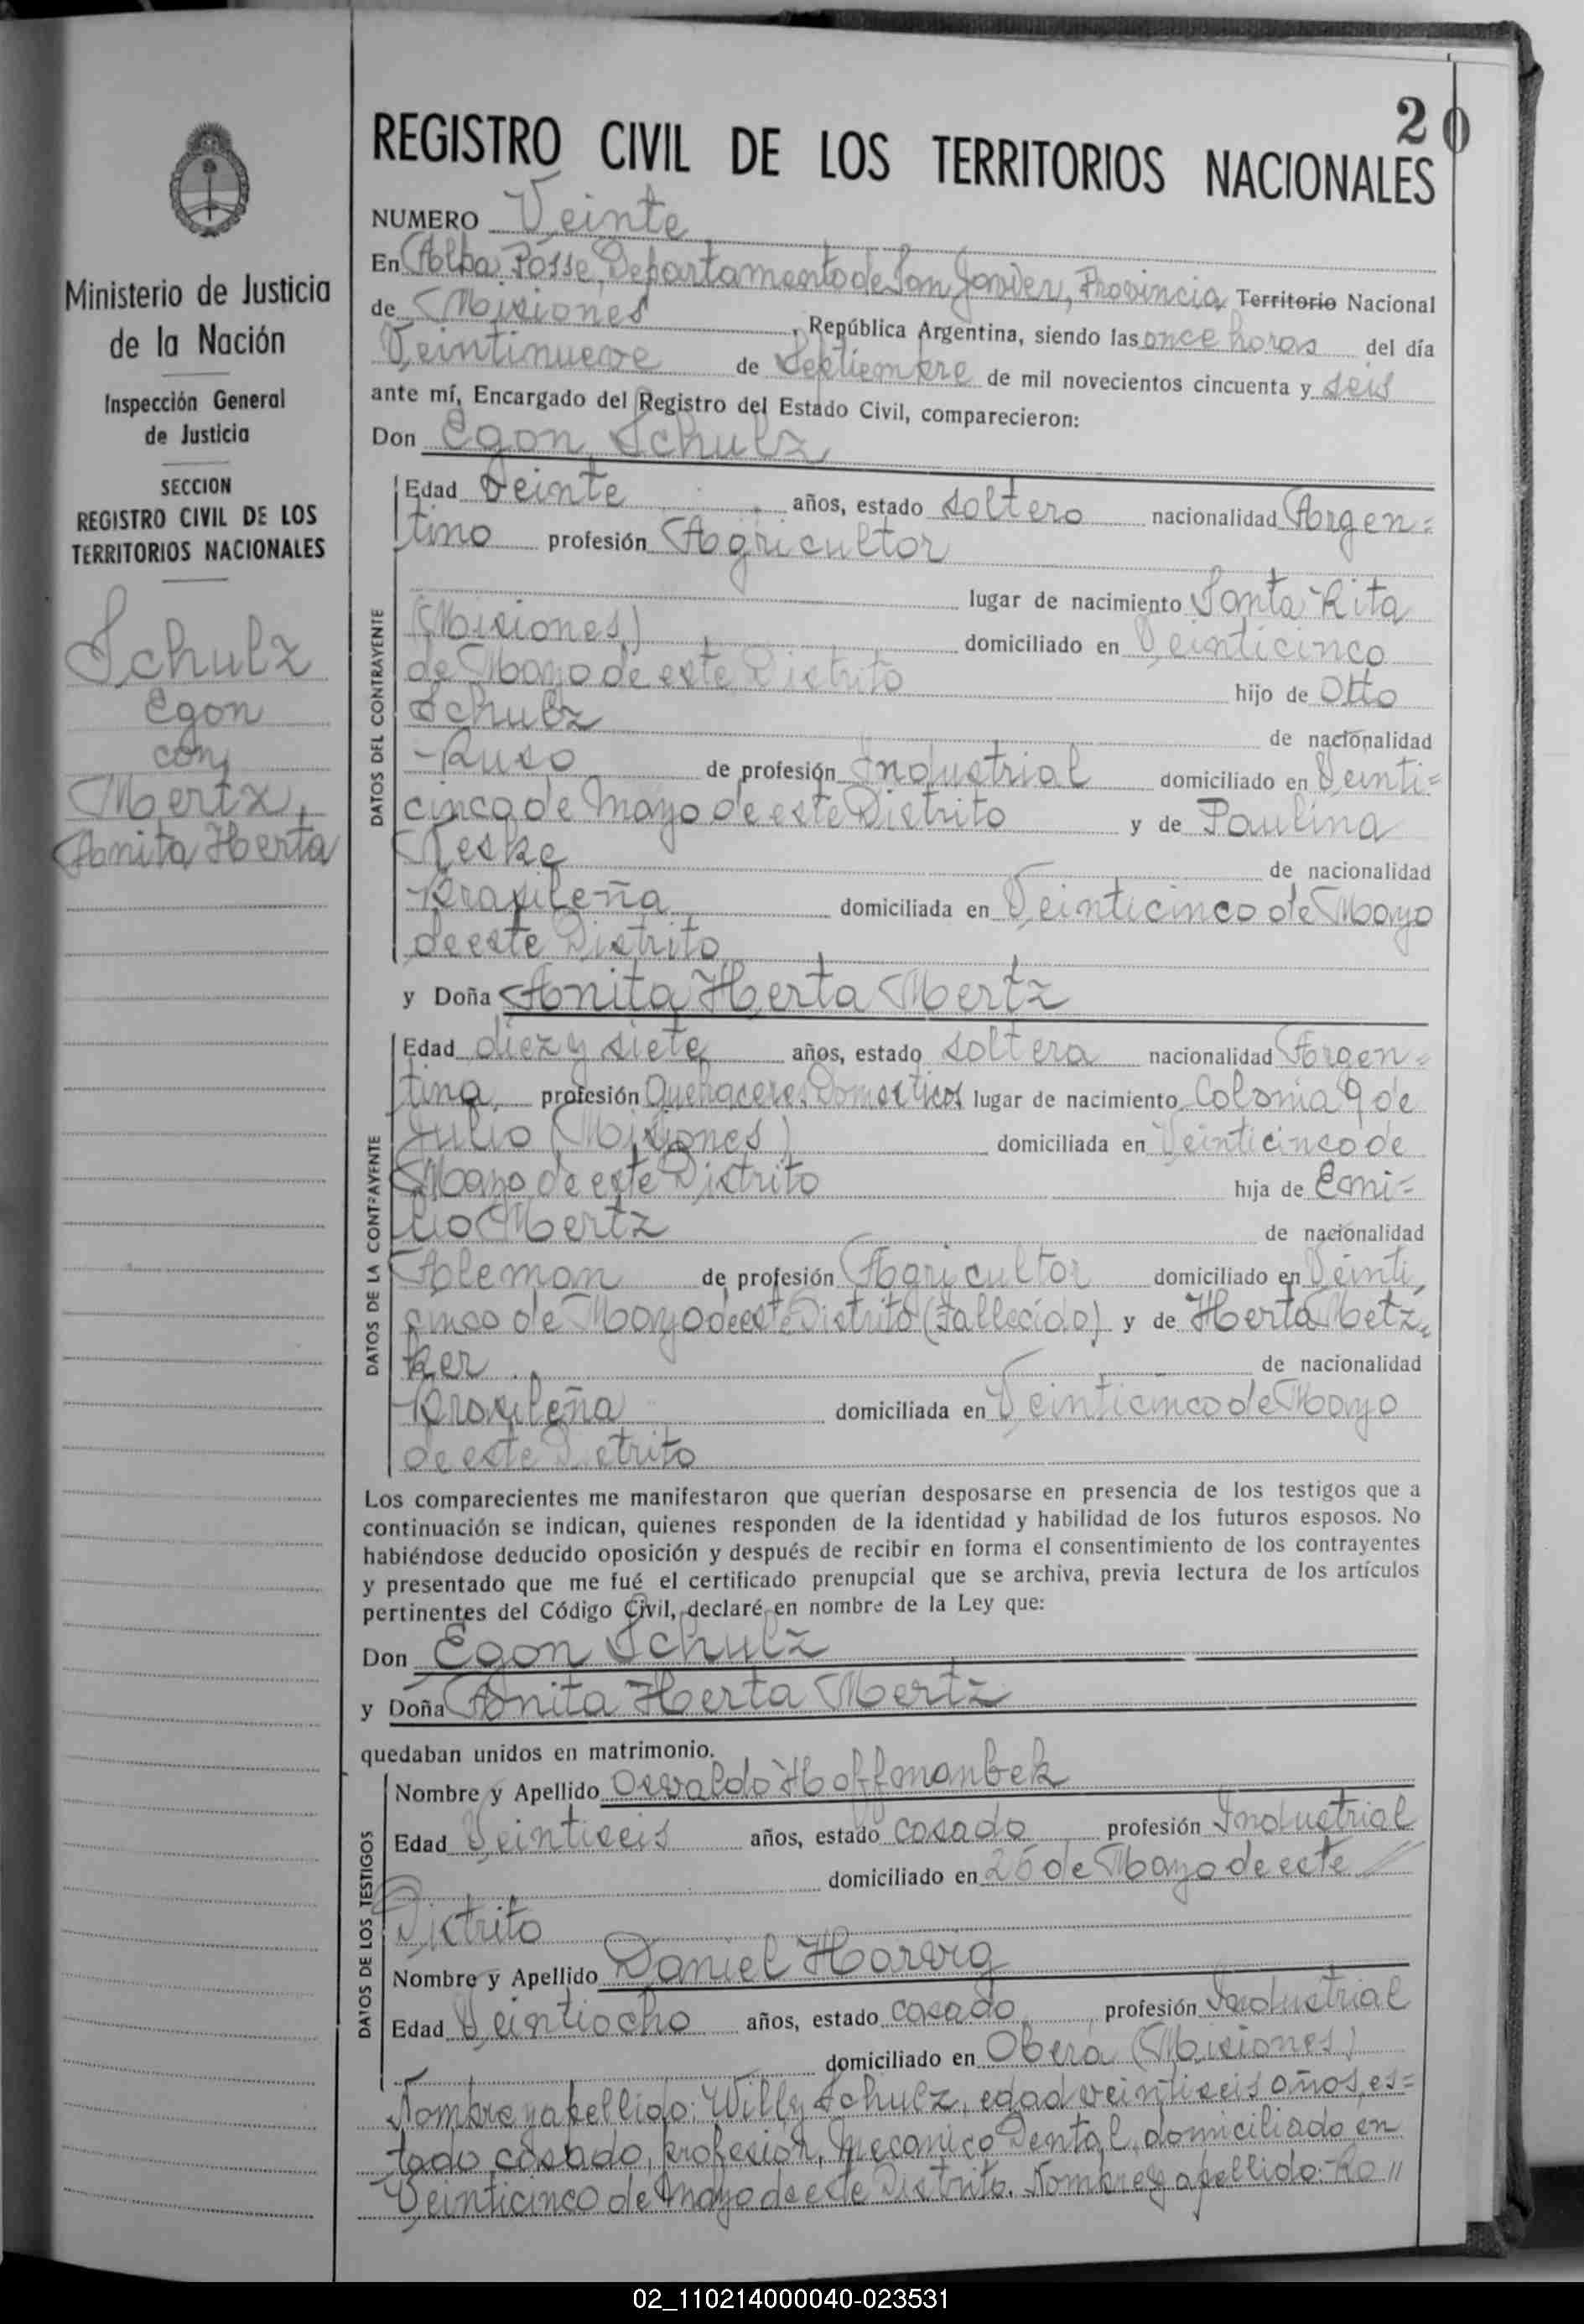 20
REGISTRO CIVIL DE LOS TERRITORIOS NACIONALES
NUMERO Veinte
En Alba Posse, Departamento de San Javier, Provincia Territorio Nacional
de Misiones, República Argentina, siendo las once horas del día
Veintinueve de Septiembre de mil novecientos cincuenta y seis
ante mí, Encargado del Registro del Estado Civil, comparecieron:
Don Egon Schulz
DATOS DEL CONTRAYENTE
Edad Veinte años, estado soltero nacionalidad Argen=
tino profesión Agricultor
lugar de nacimiento Santa Rita
(Misiones) domiciliado en Veinticinco
de Mayo de este Distrito
hijo de Otto
Schulz
de nacionalidad
Ruso de profesión Industrial domiciliado en Veinti=
cinco de Mayo de este Distrito y de Paulina
Reske
de nacionalidad
Brasileña domiciliada en Veinticinco de Mayo
de este Distrito
y Doña Anita Herta Mertz
DATOS DE LA CONTRAYENTE
Edad diez y siete años, estado soltera nacionalidad Argen=
tina, profesión Quehaceres Domesticos lugar de nacimiento Colonia 9 de
Julio (Misiones) domiciliada en Veinticinco de
Mayo de este Distrito hija de Emi=
lio Mertz de nacionalidad
Aleman de profesión Agricultor domiciliado en Veinti
cinco de Mayo de este Distrito (Fallecido) y de Herta Metz=
ker de nacionalidad
Brasileña domiciliada en Veinticinco de Mayo
de este Distrito
Los comparecientes me manifestaron que querían desposarse en presencia de los testigos que a
continuación se indican, quienes responden de la identidad y habilidad de los futuros esposos. No
habiéndose deducido oposición y después de recibir en forma el consentimiento de los contrayentes
y presentado que me fué el certificado prenupcial que se archiva, previa lectura de los artículos
pertinentes del Código Civil, declaré en nombre de la Ley que:
Don Egon Schulz
y Doña Anita Herta Mertz
quedaban unidos en matrimonio.
DATOS DE LOS TESTIGOS
Nombre y Apellido Osvaldo Hoffmanbek
Edad Veintiseis años, estado casado profesión Industrial
domiciliado en 25 de Mayo de este
Distrito
Nombre y Apellido Daniel
Edad Veintiocho años, estado casado profesión Industrial
domiciliado en Oberá (Misiones)
Nombre y apellido: Willy Schulz, edad veintiseis años, es=
tado casado, profesion, Mecanico Dental, domiciliado en
Veinticinco de Mayo de este Distrito. Nombre y apellido: Ro"
Ministerio de Justicia
de la Nación
Inspección General
de Justicia
SECCION
REGISTRO CIVIL DE LOS
TERRITORIOS NACIONALES
Schulz
Egon
con
Mertz,
Anita Herta
02_110214000040-023531